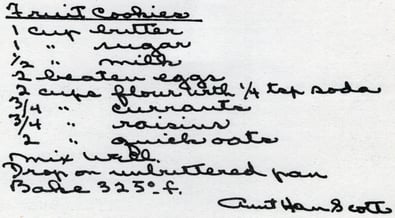 Fruit Cookies
1 cup butter
1 " sugar
1/2 " milk
2 beaten eggs
2 cups flour with 1/4 tsp soda
3/4 " currants
3/4 " raisins
2 " quick oats
Mix well.
Drop on unbuttered pan
Bake 325° f.
Aunt Han Scott